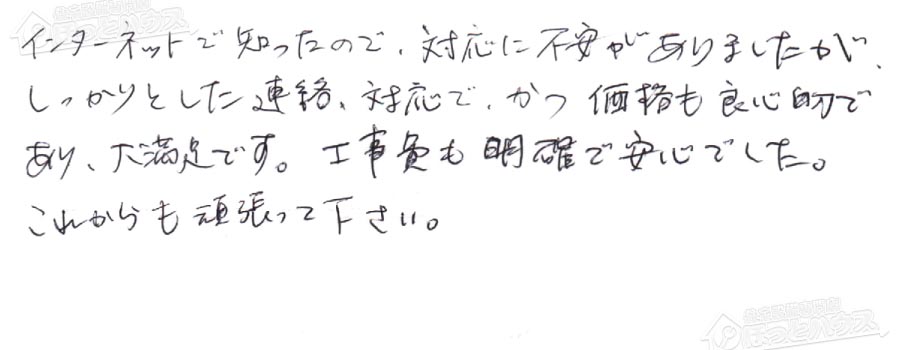 インターネットで知ったので、対応に不安がありましたが、
しっかりとした連絡、対応で、かつ価格も良心的で
あり、大満足です。工事費も明確で安心でした。
これからも頑張って下さい。
ほっとハウス
ほっとハウス